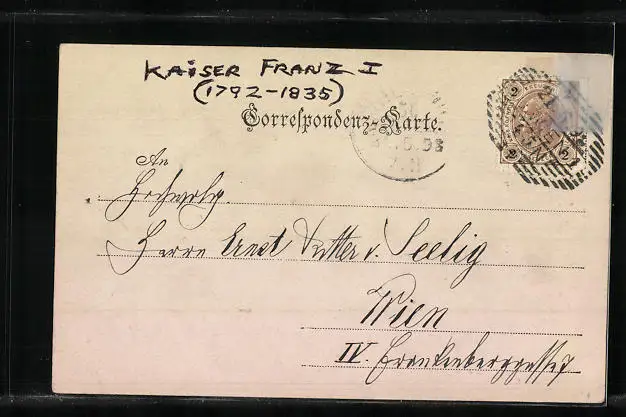 KAISER FRANZ I
(1792-1835)
Correspondenz-Karte.
An
Hochwolg.
Herrn Ernst Ritter v. Seelig
Wien
IV. Frankenberggasse 7
2 2
2 2